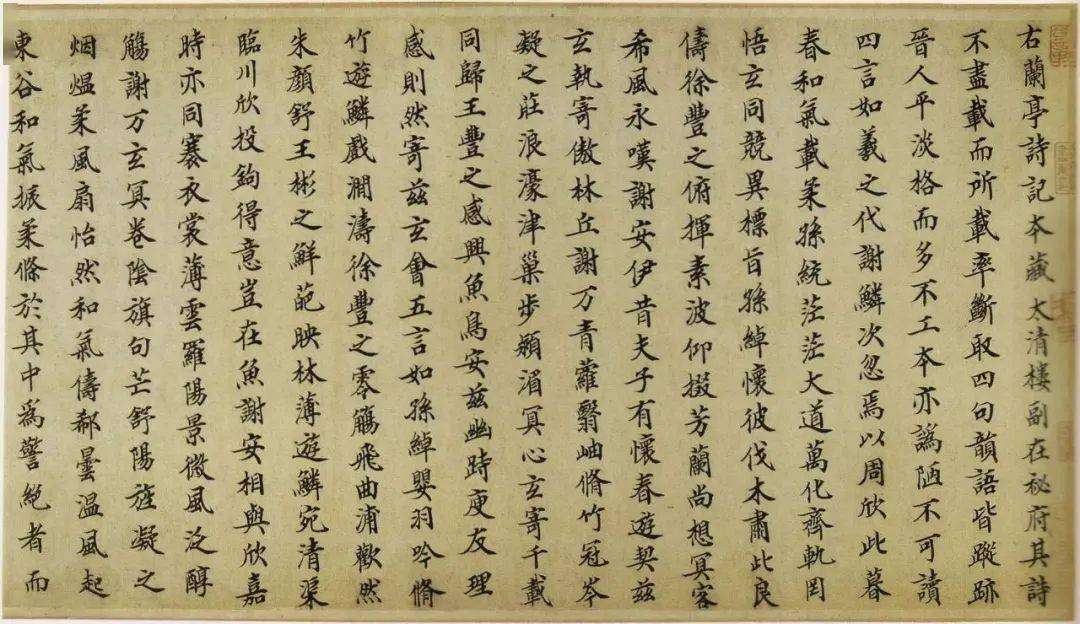 右蘭亭詩記本藏太清樓副在秘府其詩
不盡載而所載率斷取四句韻語皆蹤跡
晉人平淡格而多不工本亦譌陋不可讀
四言如羲之代謝鱗次忽焉以周欣此暮
春和氣載柔孫統茫茫大道萬化齊軌罔
悟玄同競異標旨孫綽懷彼伐木肅此良
儔徐豐之俯揮素波仰掇芳蘭尚想冥客
希風永嘆謝安伊昔夫子有懷春遊契茲
玄執寄傲林丘謝万青蘿翳岫脩竹冠岑
凝之莊浪濠津巢步潁湄冥心玄寄千載
同歸王豐之感興魚鳥安茲幽跱庾友理
感則然寄茲玄會五言如孫綽嬰羽吟脩
竹遊鱗戲澗濤徐豐之零觴飛曲浦歡然
朱顏舒王彬之鮮葩映林薄遊鱗宛清渠
臨川欣投鉤得意豈在魚謝安相與欣嘉
時亦同褰衣裳薄雲羅陽景微風泛醇
觴謝万玄冥卷陰旗句芒舒陽旌凝之
烟煴柔風扇怡然和氣儔郗曇溫風起
東谷和氣振柔條於其中為警絕者而